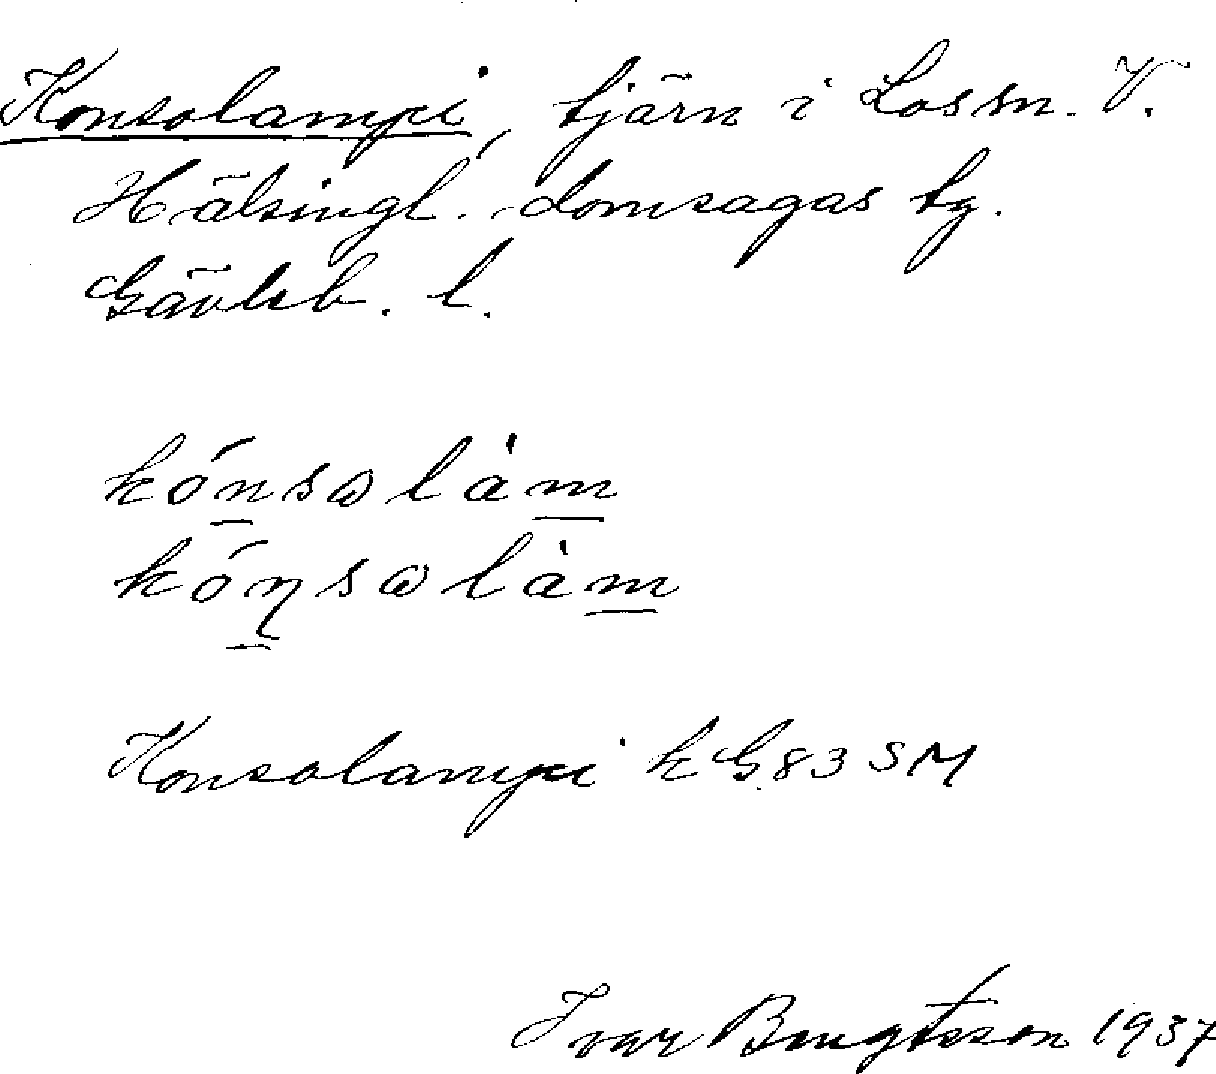 Konsolampi, tjärn i Los sn. V.
Hälsingl. domsagas tg.
Gävleb. l.
kónsɷlàm
kóŋsɷlàm
Konsolampi kG.83 SM
Ivar Bengtsson 1937